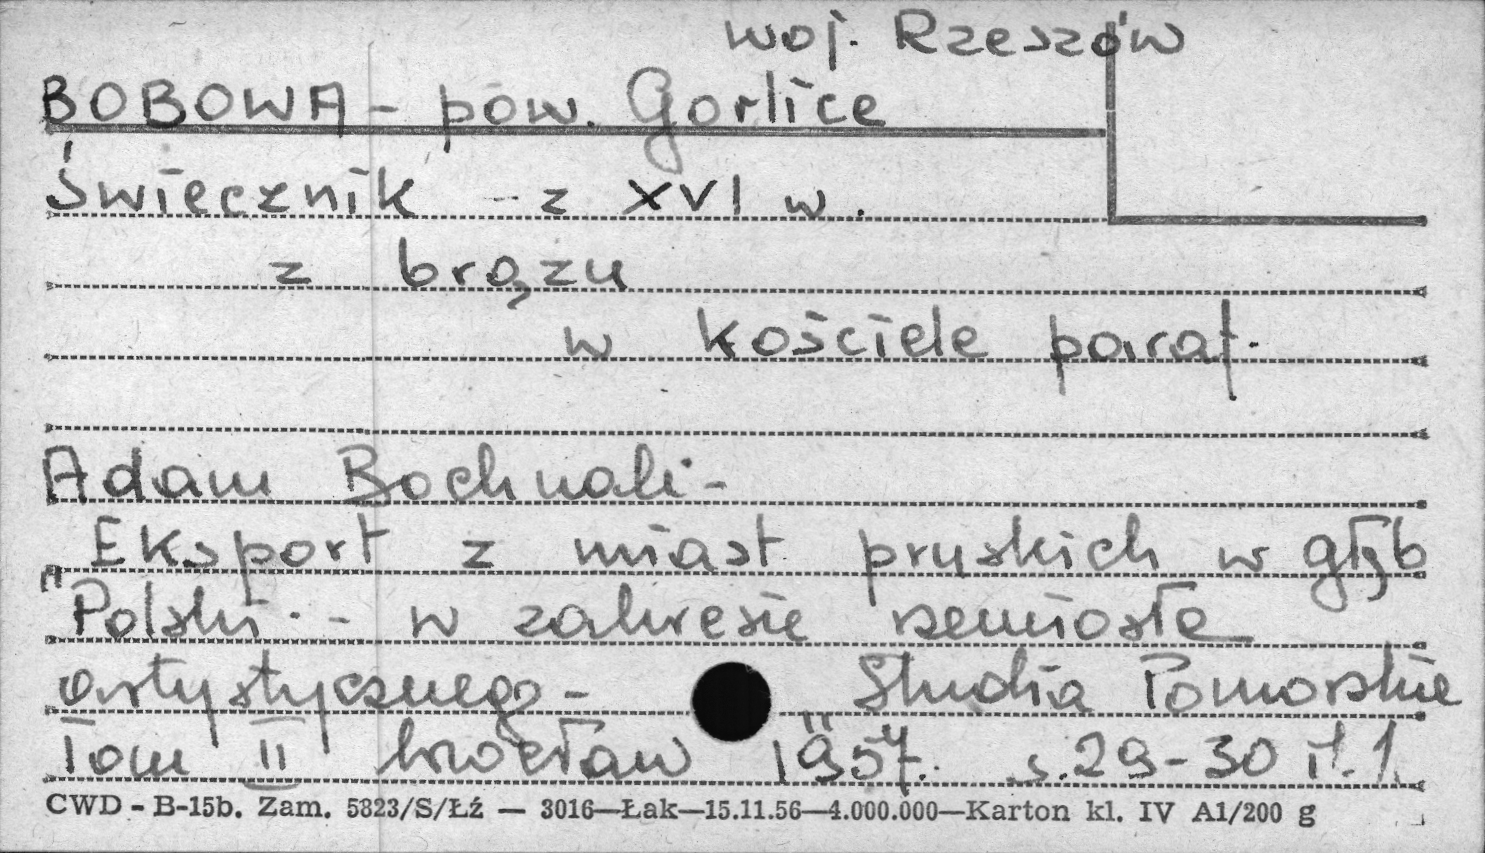 woj. Rzeszów
BOBOWA - pow. Gorlice
Świecznik - z XVI w.
z brązu
w kościele paraf.
Adam Bochnak -
Eksport z miast pruskich w głąb
Polski. - w zakresie rzemiosła
artystycznego - "Studia Pomorskie
Tom II Wrocław 1957. s. 29-30 il. 1
CWD - B-15b. Zam. 5823/S/Łź — 3016—Łak—15.11.56—4.000.000—Karton kl. IV A1/200 g